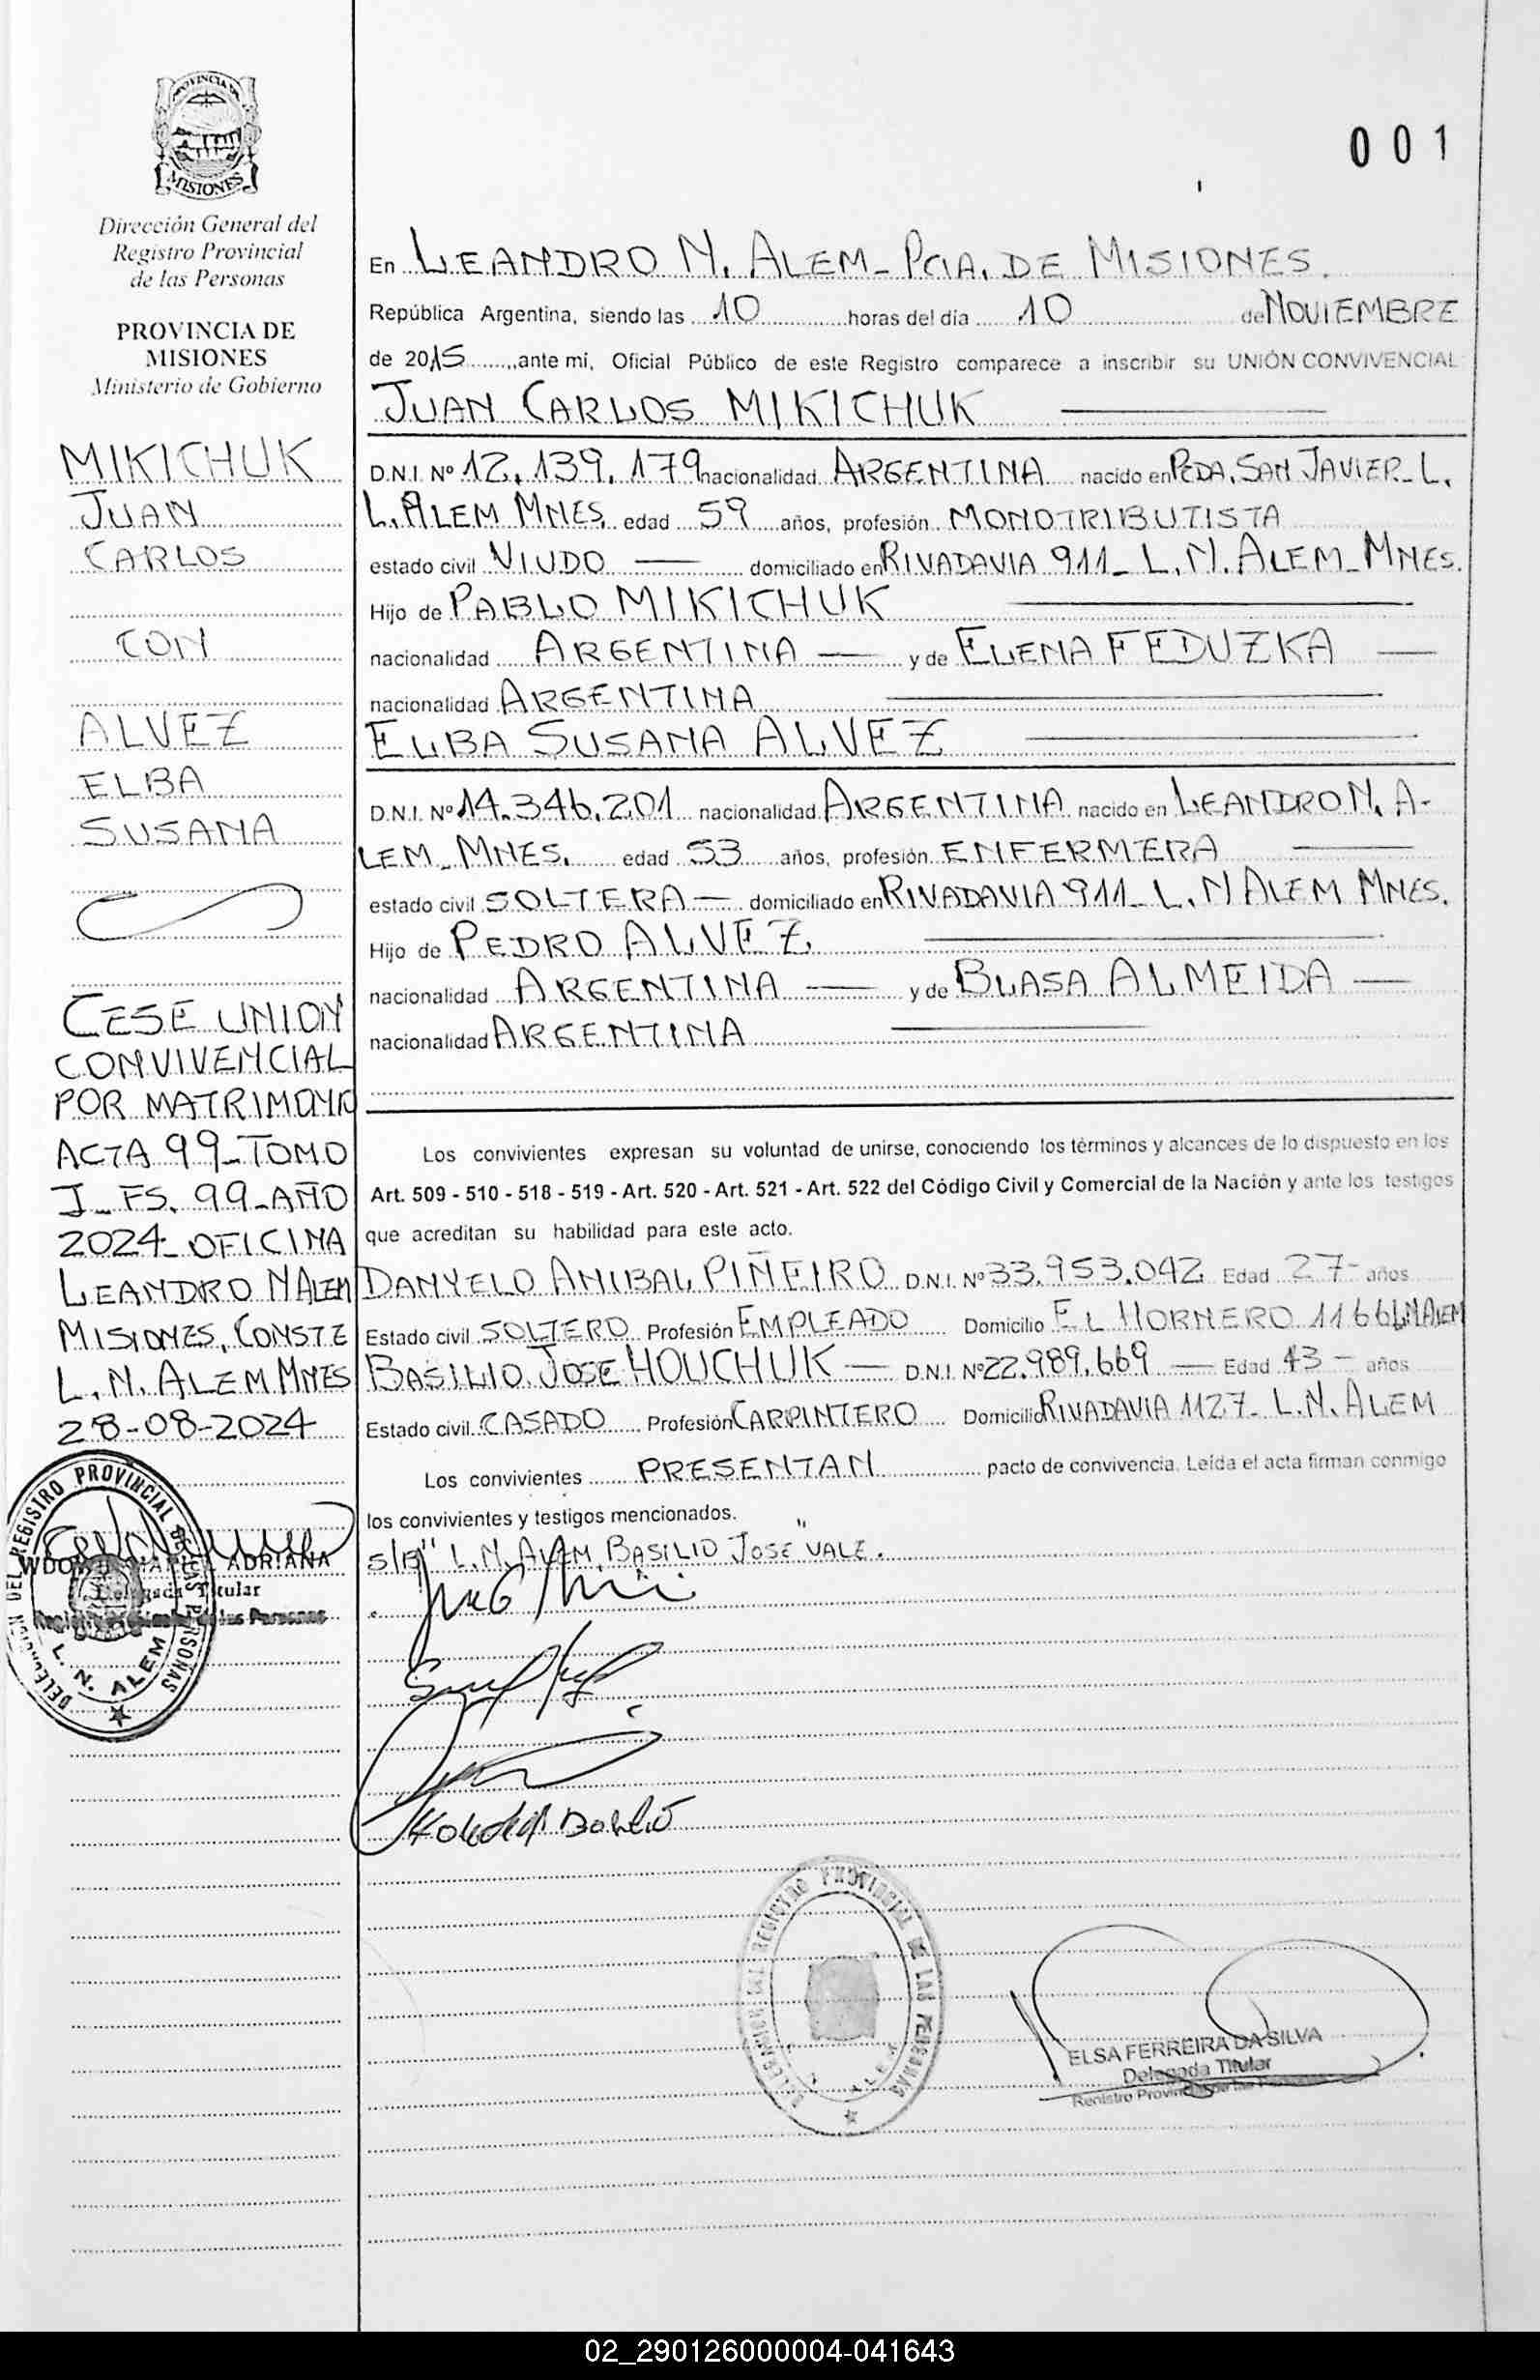 PROVINCIA DE
MISIONES
Dirección General del
Registro Provincial
de las Personas
PROVINCIA DE
MISIONES
Ministerio de Gobierno
MIKICHUK
JUAN
CARLOS
CON
ALVEZ
ELBA
SUSANA
CESE UNION
CONVIVENCIAL
POR MATRIMONIO
ACTA 99-TOMO
I-FS. 99-AÑO
2024-OFICINA
LEANDRO N ALEM
MISIONES, CONSTE
L. N. ALEM MNES
28-08-2024
DELEGACION DEL REGISTRO PROVINCIAL DE LAS PERSONAS
L. N. ALEM
ADRIANA
Delegada Titular
de las Personas
001
En LEANDRO N. ALEM-PCIA. DE MISIONES.
República Argentina, siendo las 10 horas del día 10 de NOVIEMBRE
de 2015 ante mi, Oficial Público de este Registro comparece a inscribir su UNIÓN CONVIVENCIAL
JUAN CARLOS MIKICHUK
D.N.I. Nº 12.139.179 nacionalidad ARGENTINA nacido en PCDA. SAN JAVIER-L.
L. ALEM MNES. edad 59 años, profesión MONOTRIBUTISTA
estado civil VIUDO domiciliado en RIVADAVIA 911- L. N. ALEM-MNES.
Hijo de PABLO MIKICHUK
nacionalidad ARGENTINA y de ELENA FEDUZKA
nacionalidad ARGENTINA
ELBA SUSANA ALVEZ
D.N.I. Nº 14.346.201 nacionalidad ARGENTINA nacido en LEANDRO N. A-
LEM-MNES. edad 53 años, profesión ENFERMERA
estado civil SOLTERA domiciliado en RIVADAVIA 911- L. N ALEM MNES.
Hijo de PEDRO ALVEZ
nacionalidad ARGENTINA y de BLASA ALMEIDA
nacionalidad ARGENTINA
Los convivientes expresan su voluntad de unirse, conociendo los términos y alcances de lo dispuesto en los
Art. 509 - 510 - 518 - 519 - Art. 520 - Art. 521 - Art. 522 del Código Civil y Comercial de la Nación y ante los testigos
que acreditan su habilidad para este acto.
DANYELO ANIBAL PIÑEIRO D.N.I. Nº 33.953.042 Edad 27- años
Estado civil SOLTERO Profesión EMPLEADO Domicilio EL HORNERO 1166 L.N.ALEM
BASILIO JOSE HOUCHUK D.N.I. Nº 22.989.669 Edad 43- años
Estado civil CASADO Profesión CARPINTERO Domicilio RIVADAVIA 1127- L.N. ALEM
Los convivientes PRESENTAN pacto de convivencia. Leída el acta firman conmigo
los convivientes y testigos mencionados.
S/R " L.N. ALEM, BASILIO JOSE" VALE.
DELEGACION DEL REGISTRO PROVINCIAL DE LAS PERSONAS
ELSA FERREIRA DA SILVA
Delegada Titular
Registro Provincial de las Personas
02_290126000004-041643